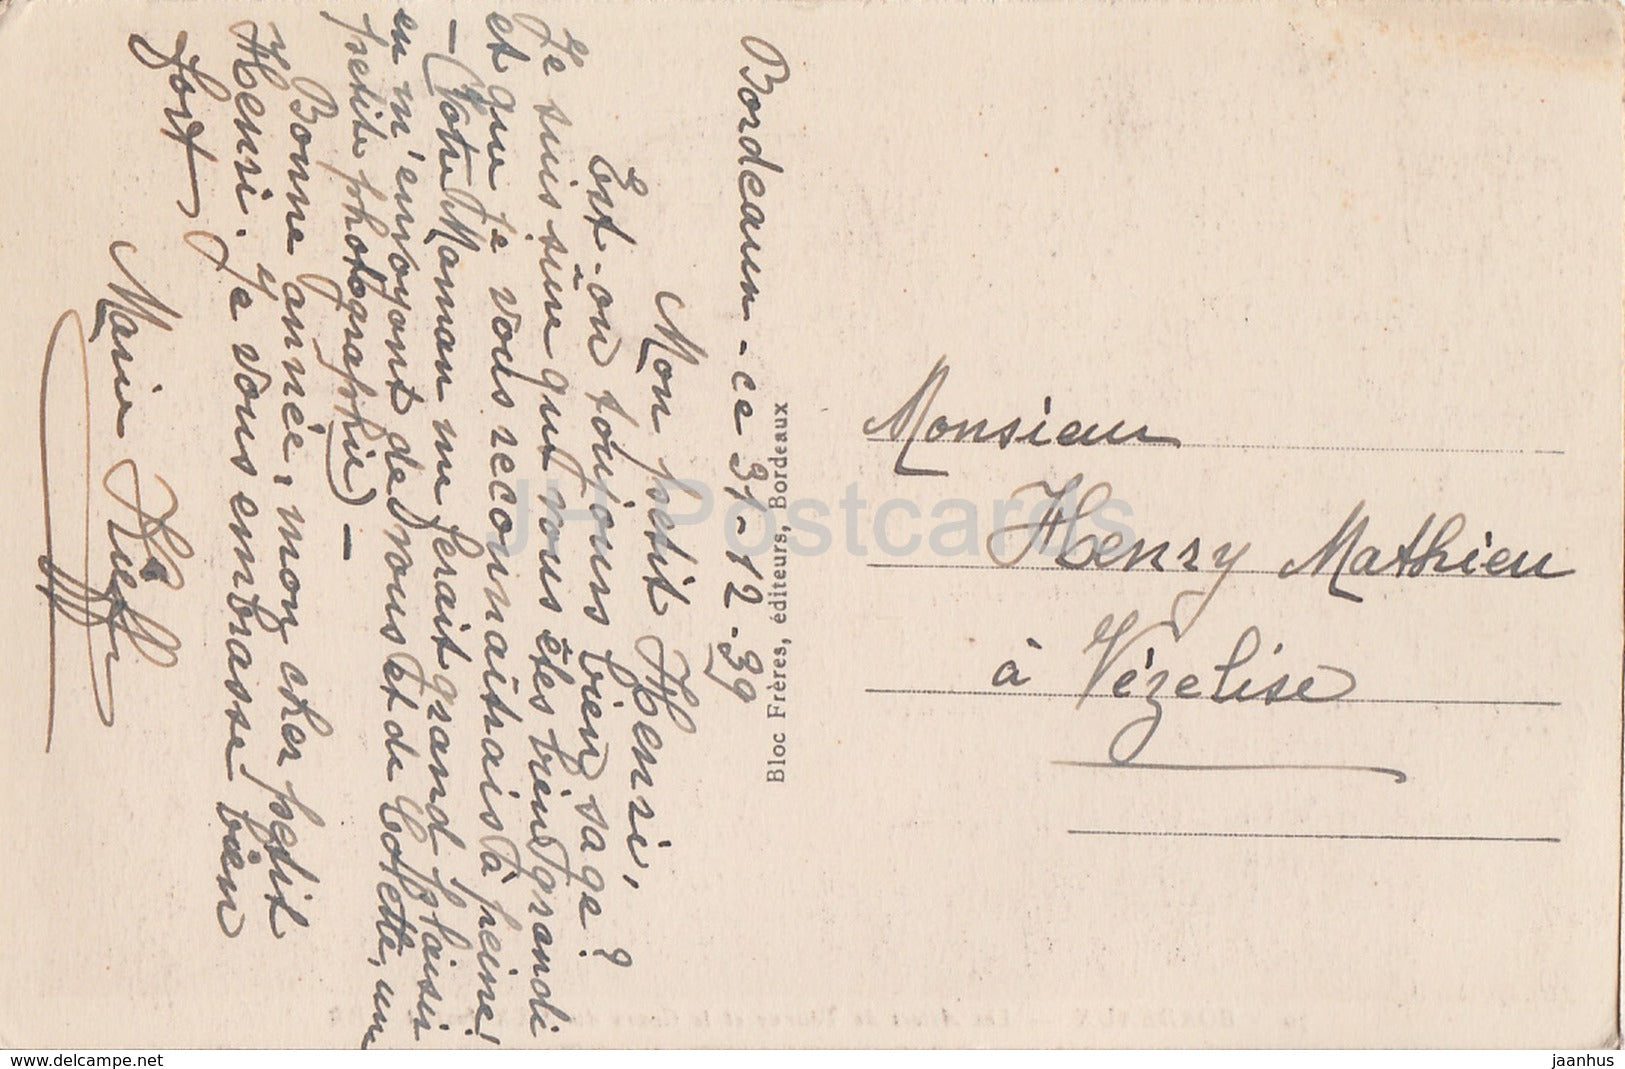 Bordeaux - ce 31-12-39
Mon petit Henri,
Est-on toujours bien sage?
Je suis sûre que vous êtes bien grandi
et que je vous reconnaîtrais à peine!
- (Votre Maman me ferait grand plaisir
en m'envoyant de vous et de Colette, une
petite photographie) -
Bonne année, mon cher petit
Henri. Je vous embrasse bien
fort
Marie
Bloc Frères, éditeurs, Bordeaux
Monsieur
Henry Mathieu
à Vézelise
JH Postcards
www.delcampe.net
jaanhus